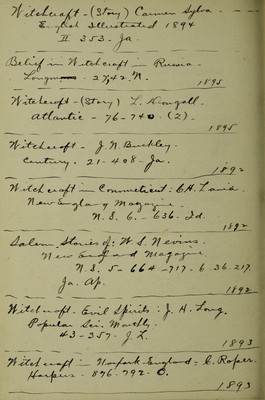 Witchcraft - (Story) Carmen Sylva -
English Illustrated 1894
II 353. Ja.
Belief in Witchcraft in Russia -
Longman - 27,42. N.
1895
Witchcraft - (Story) L. Dougall.
Atlantic - 76-740. (2).
1895
Witchcraft - J. N. Buckley.
Century. 21-408. Ja.
1892
Witchcraft in Connecticut: C.H.
New England Magazine.
N.S. 6. - 636.
1892
Salem, Stories of: W. S. Nevins.
New England Magazine.
N.S. 5- 664-717. 6.36.217.
Ja. Ap.
1892
Witchcraft. Evil Spirits: J. H. Long.
Popular Sci. Monthly.
43-357- J.L.
1893
Witchcraft in England: C. Roper.
Harpers - 87 6. 792. O.
1893